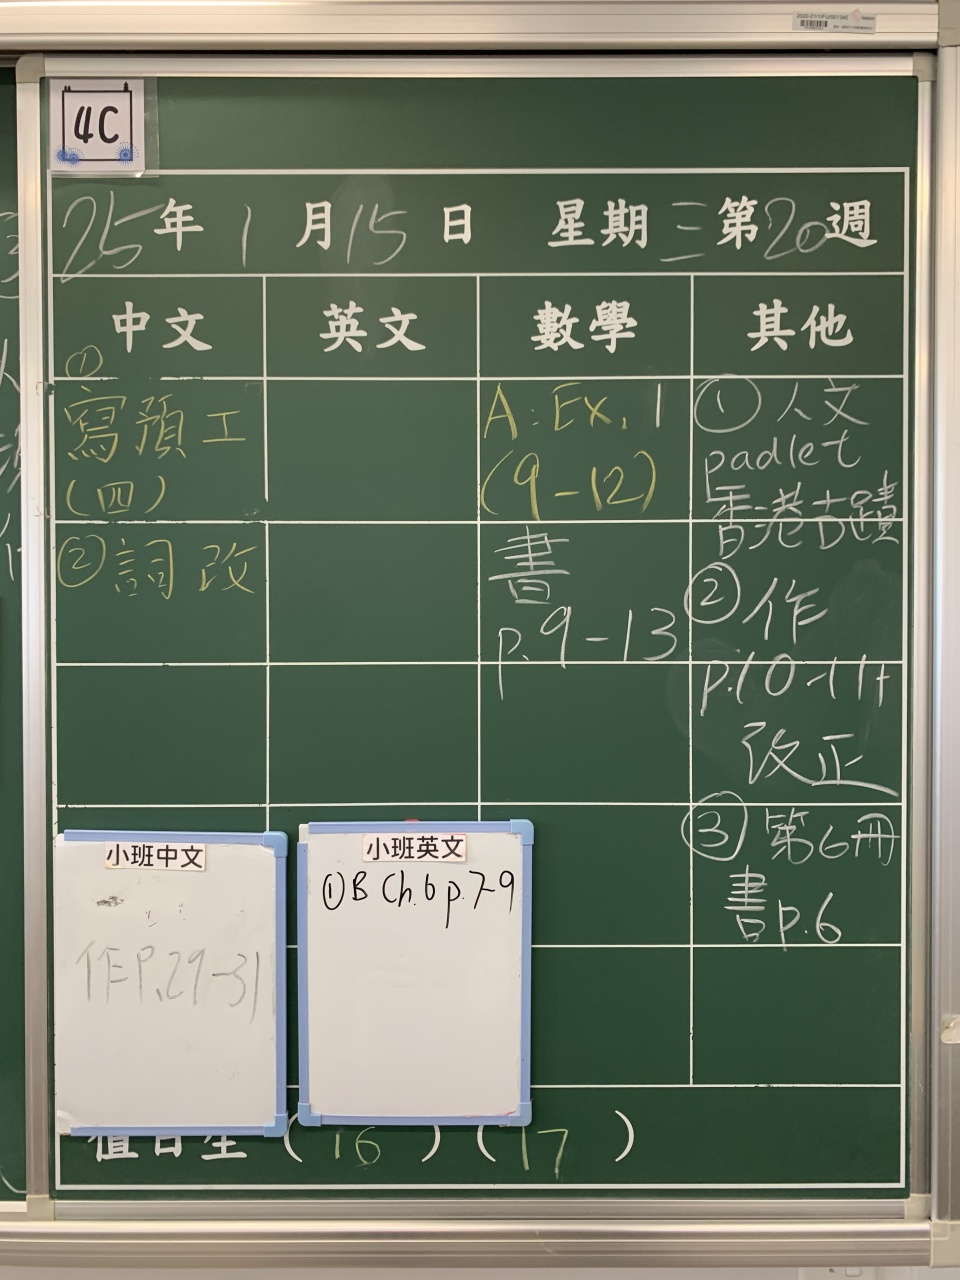 4C
25年1月15日 星期三第20週
中文 英文 數學 其他
①
寫預工
(四)
②詞改
A:Ex.1
(9-12)
書
p.9-13
①人文
padlet
香港古蹟
②作
p.10-11+
改正
③第6冊
書p.6
小班中文
作P.29-31
小班英文
①B Ch.6 p.7-9
值日生(16)(17)